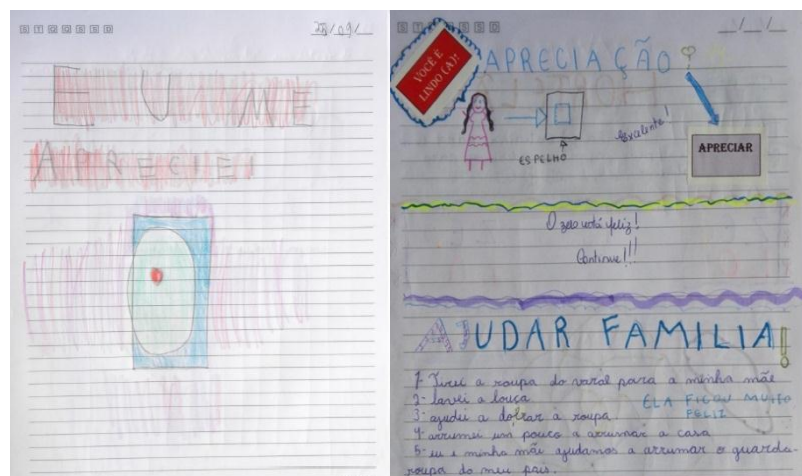 S T Q Q S S D
28/09/
EU ME
APRECIEI
S T Q Q S S D
VOCÊ É
LINDO(A)!
APRECIAÇÃO
ESPELHO
Excelente!
APRECIAR
O zelo está feliz!
Continue!!!
AJUDAR FAMILIA!
1- Tirei a roupa do varal para a minha mãe
2- lavei a louça
3- ajudei a dobrar a roupa
ELA FICOU MUITO
FELIZ
4- arrumei um pouco a arrumar a casa
5- eu e minha mãe ajudamos a arrumar o guarda-
roupa do meu pais.